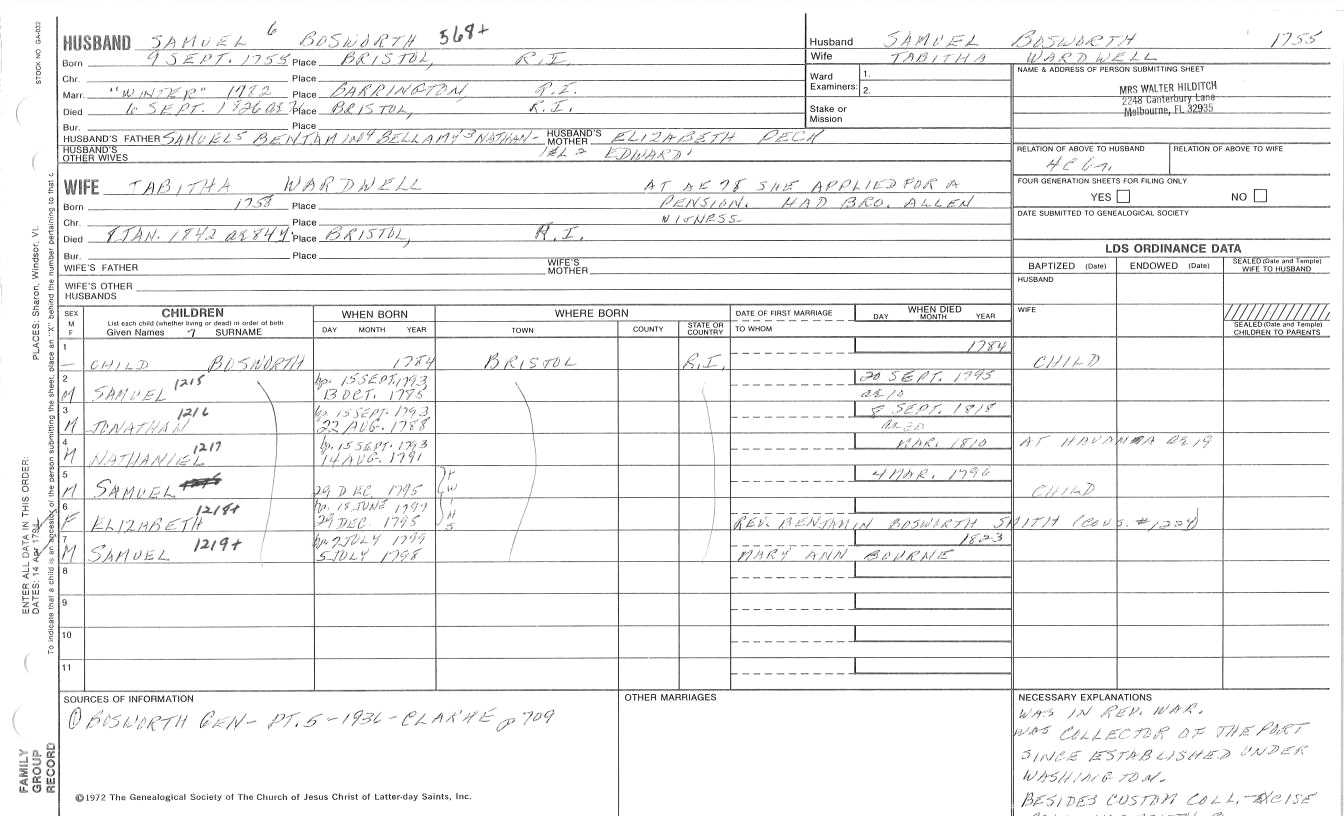 STOCK NO GA-032
HUSBAND SAMUEL 6 BOSWORTH 568+
Born 9 SEPT. 1755 Place BRISTOL, R.I.
Chr. Place
Marr. "WINTER" 1782 Place BARRINGTON, R.I.
Died 6 SEPT. 1826 Place BRISTOL, R.I.
Bur. Place
HUSBAND'S FATHER SAMUEL5 BENJAMIN4 BELLAMY3 NATHAN- HUSBAND'S MOTHER ELIZABETH PECK
HUSBAND'S OTHER WIVES EDWARD1
Husband SAMUEL BOSWORTH 1755
Wife TABITHA WARDWELL
Ward Examiners: 1. 2.
Stake or Mission
NAME & ADDRESS OF PERSON SUBMITTING SHEET
MRS WALTER HILDITCH
2248 Canterbury Lane
Melbourne, FL 32935
RELATION OF ABOVE TO HUSBAND RELATION OF ABOVE TO WIFE
FOUR GENERATION SHEETS FOR FILING ONLY
YES NO
DATE SUBMITTED TO GENEALOGICAL SOCIETY
WIFE TABITHA WARDWELL AT AE 78 SHE APPLIED FOR A
Born 1758 Place PENSION. HAD BRO. ALLEN
Chr. Place WITNESS
Died 8 JAN. 1842 ae 84 y. Place BRISTOL, R.I.
Bur. Place
WIFE'S FATHER WIFE'S MOTHER
WIFE'S OTHER HUSBANDS
LDS ORDINANCE DATA
BAPTIZED (Date) ENDOWED (Date) SEALED (Date and Temple) WIFE TO HUSBAND
HUSBAND
WIFE
SEALED (Date and Temple) CHILDREN TO PARENTS
SEX M F CHILDREN WHEN BORN WHERE BORN DATE OF FIRST MARRIAGE WHEN DIED
List each child (whether living or dead) in order of birth
Given Names 7 SURNAME DAY MONTH YEAR TOWN COUNTY STATE OR COUNTRY TO WHOM DAY MONTH YEAR
1 – CHILD BOSWORTH 1784 BRISTOL R.I. 1784 CHILD
2 M SAMUEL 1215 bp. 15 SEPT. 1793 13 OCT. 1785 20 SEPT. 1795 ae 10
3 M JONATHAN 1216 bp. 15 SEPT. 1793 22 AUG. 1788 8 SEPT. 1818 ae 30
4 M NATHANIEL 1217 bp. 15 SEPT. 1793 14 AUG. 1791 MAR. 1810 AT HAVANNA ae 19
5 M SAMUEL 29 DEC 1795 4 MAR. 1796 CHILD
TWINS
6 F ELIZABETH 1218+ bp. 18 JUNE 1797 29 DEC 1795 REV. BENJAMIN BOSWORTH SMITH (COUS. #1224)
7 M SAMUEL 1219+ bp. 7 JULY 1799 5 JULY 1798 1823 MARY ANN BOURNE
8
9
10
11
SOURCES OF INFORMATION
① BOSWORTH GEN- PT. 5 - 1936 - CLARKE p 709
OTHER MARRIAGES
NECESSARY EXPLANATIONS
WAS IN REV. WAR.
WAS COLLECTOR OF THE PORT
SINCE ESTABLISHED UNDER
WASHINGTON.
BESIDES CUSTOM COLL.-EXCISE
©1972 The Genealogical Society of The Church of Jesus Christ of Latter-day Saints, Inc.
FAMILY GROUP RECORD
ENTER ALL DATA IN THIS ORDER:
DATES: 14 Apr 1794
PLACES: Sharon, Windsor, Vt.
To indicate that a child is an ancestor of the person submitting the sheet, place an "X" behind the number pertaining to that c